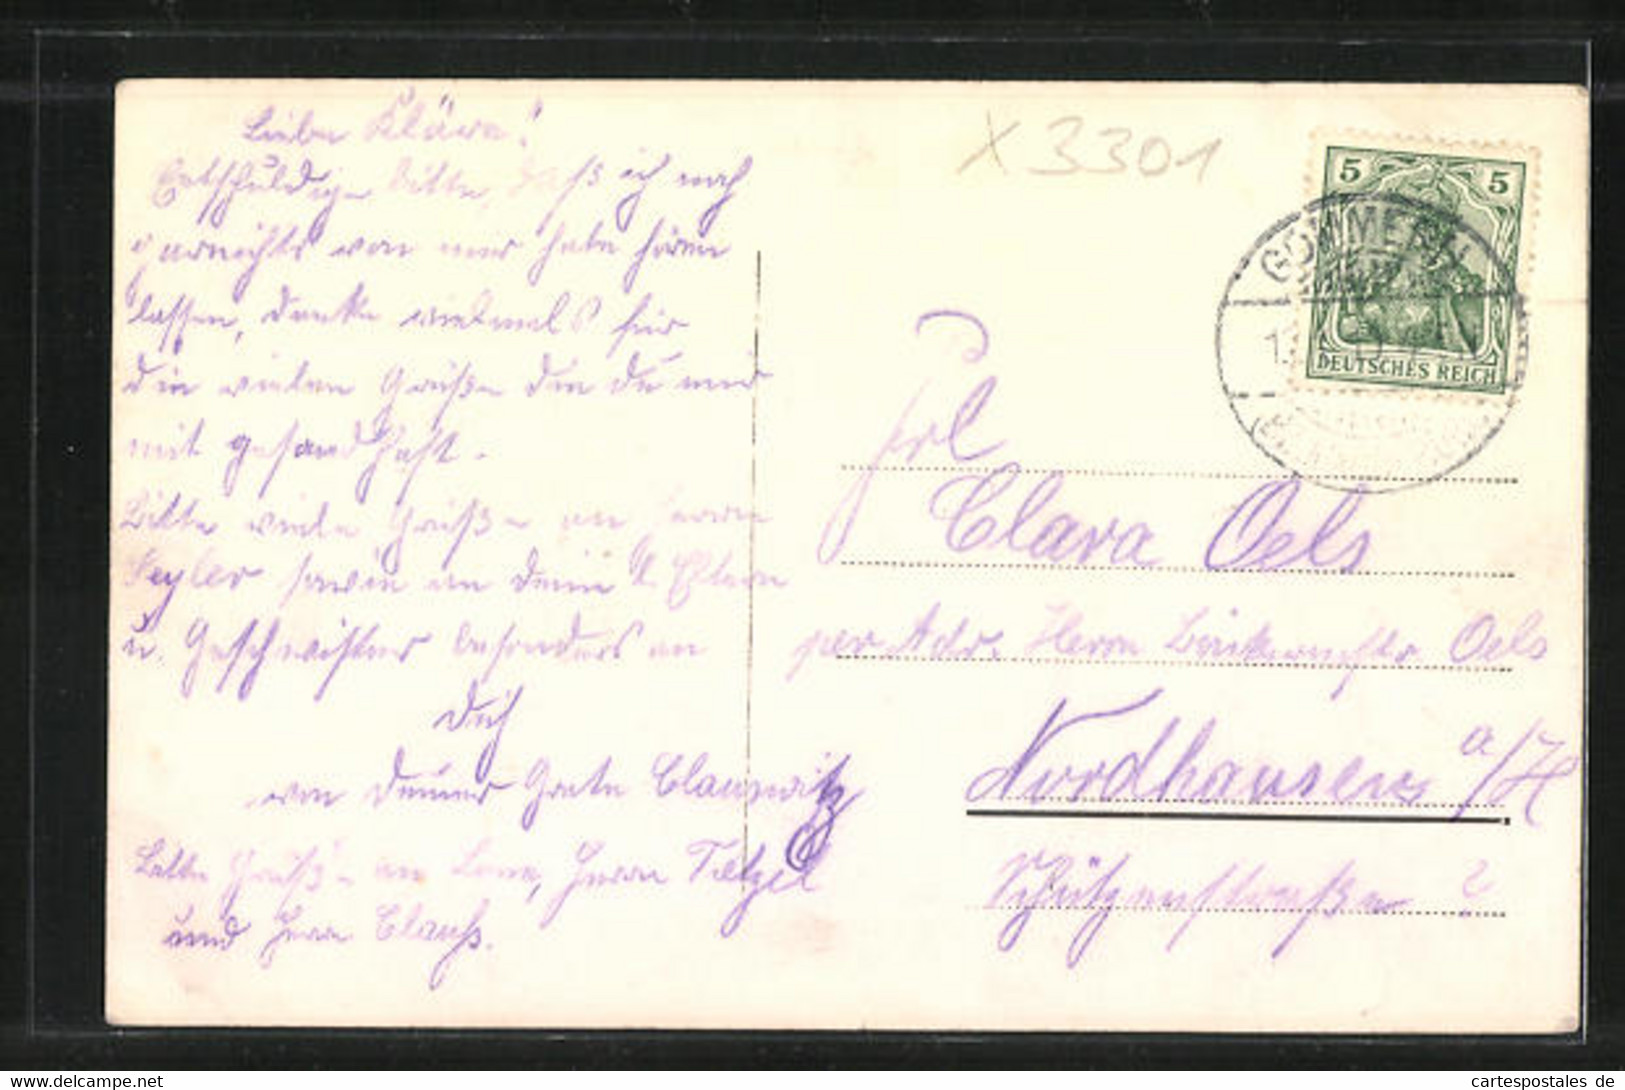 Liebe Klära!
Entschuldige bitte, daß ich noch
garnichts von mir habe hören
lassen, danke vielmals für
die vielen Grüße die du mir
mit gesandt hast.
Bitte viele Grüße an Herrn
Seyler sowie an deine l. Eltern
u. Geschwister besonders an
dich
von deiner Grete Clauswitz
Bitte Grüße an Herrn Tetzel
und Herrn Clauß.
X 3301
5 5
DEUTSCHES REICH
GOMMERN
Frl
Clara Oels
per Adr. Herrn Bäckermstr. Oels
Nordhausen a/H
Schützenstraße 2
cartespostales de
www.delcampe.net